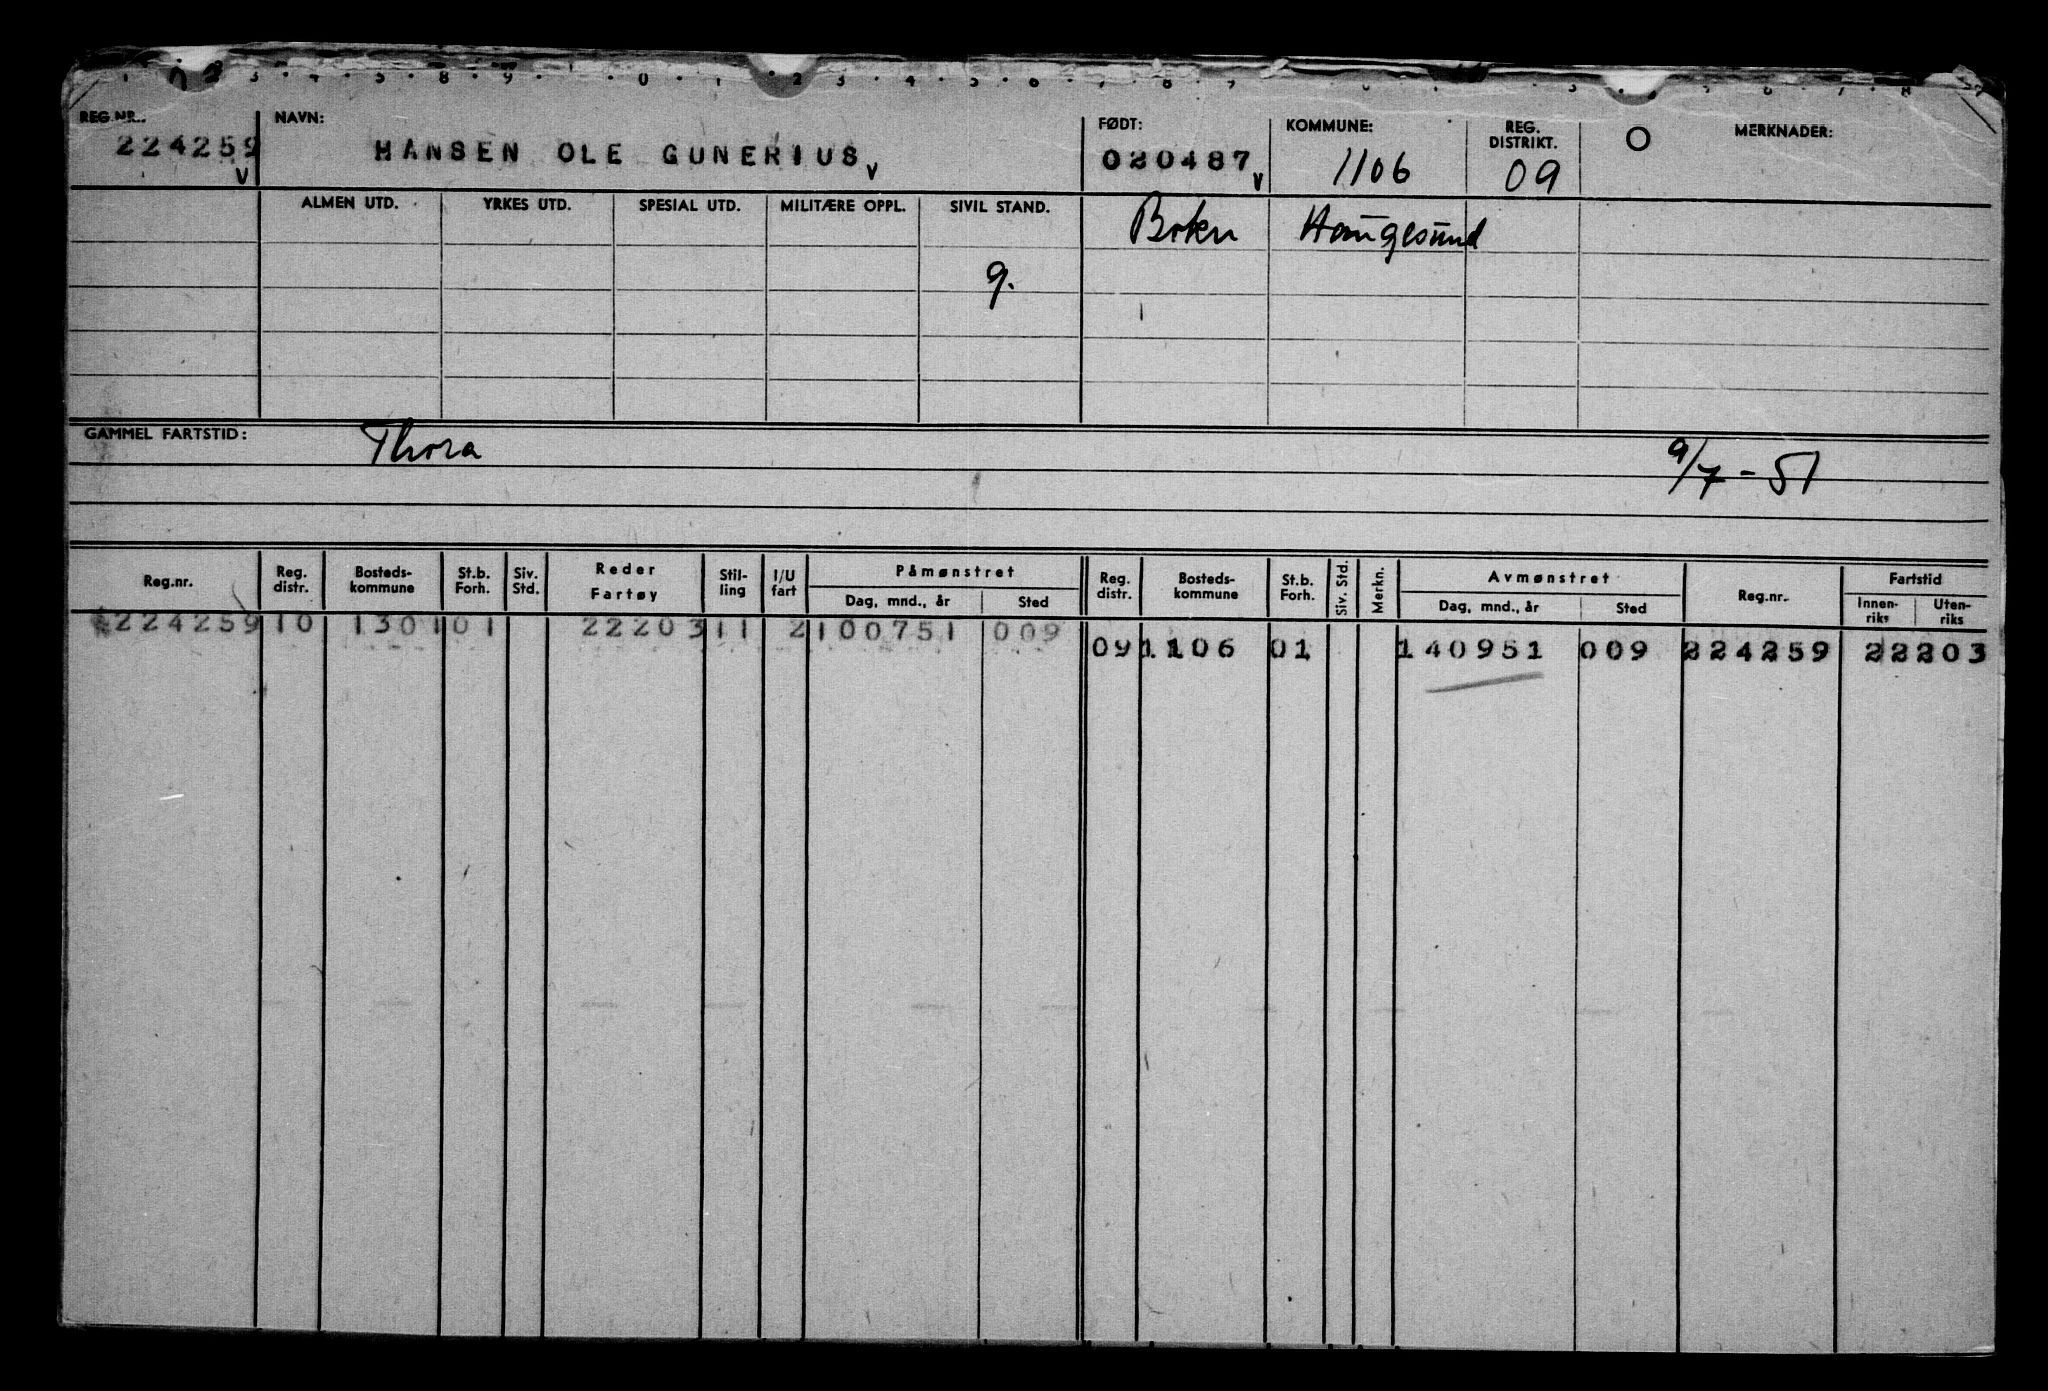 REG.NR. NAVN: FØDT: KOMMUNE: REG. DISTRIKT. O MERKNADER:
224259 HANSEN OLE GUNERIUS 020487 1106 09
v v v
ALMEN UTD. YRKES UTD. SPESIAL UTD. MILITÆRE OPPL. SIVIL STAND.
Haugesund
g.
GAMMEL FARTSTID: Thora 9/7-51
Reg.nr. Reg. distr. Bosteds-kommune St.b. Forh. Siv. Std. Reder Fartøy Stil-ling I/U fart Påmønstret Dag, mnd., år Sted Reg. distr. Bosteds-kommune St.b. Forh. Siv. Std. Merkn. Avmønstret Dag, mnd., år Sted Reg.nr. Fartstid Innen-riks Uten-riks
224259 10 1301 01 22203 11 2 100751 009
09 1106 01 140951 009 224259 22203